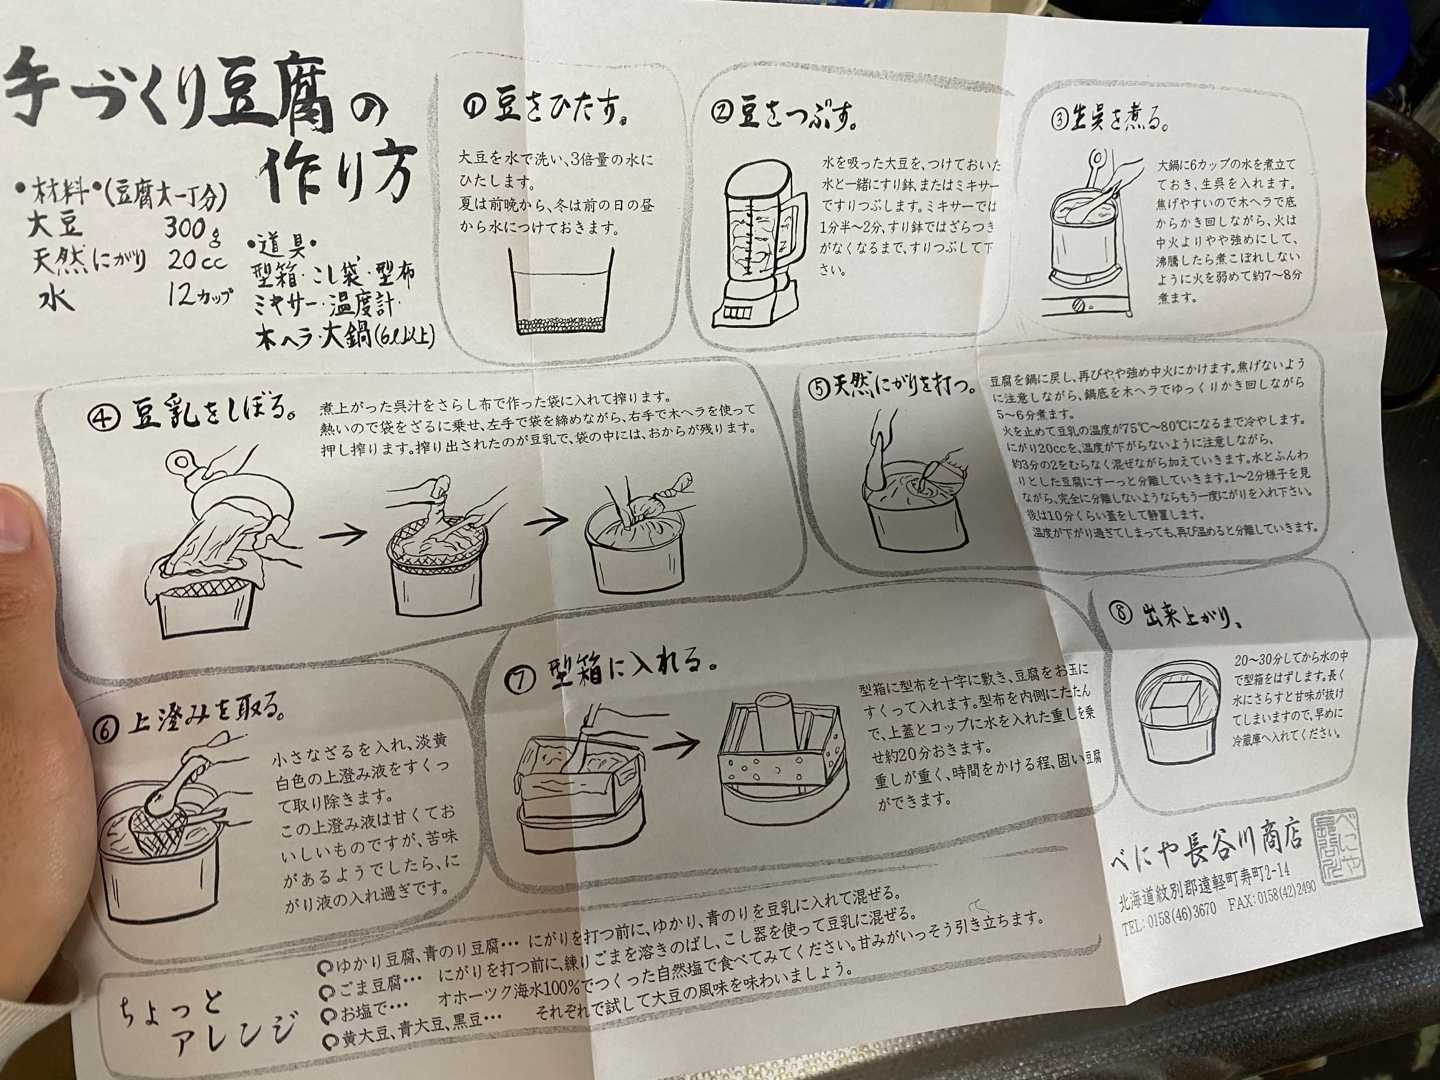 手づくり豆腐の
作り方
•材料•(豆腐大一丁分)
大豆 300g
天然にがり 20cc
水 12カップ
•道具•
型箱・こし袋・型布
ミキサー・温度計・
木ヘラ・大鍋(6ℓ以上)
①豆をひたす。
大豆を水で洗い、3倍量の水に
ひたします。
夏は前晩から、冬は前の日の昼
から水につけておきます。
②豆をつぶす。
水を吸った大豆を、つけておいた
水と一緒にすり鉢、またはミキサー
ですりつぶします。ミキサーでは
1分半〜2分、すり鉢ではざらつき
がなくなるまで、すりつぶして下
さい。
③生呉を煮る。
大鍋に6カップの水を煮立て
ておき、生呉を入れます。
焦げやすいので木ヘラで底
からかき回しながら、火は
中火よりやや強めにして、
沸騰したら煮こぼれしない
ように火を弱めて約7〜8分
煮ます。
④豆乳をしぼる。
煮上がった呉汁をさらし布で作った袋に入れて搾ります。
熱いので袋をざるに乗せ、左手で袋を締めながら、右手で木ヘラを使って
押し搾ります。搾り出されたのが豆乳で、袋の中には、おからが残ります。
⑤天然にがりを打つ。
豆腐を鍋に戻し、再びやや強め中火にかけます。焦げないよう
に注意しながら、鍋底を木ヘラでゆっくりかき回しながら
5〜6分煮ます。
火を止めて豆乳の温度が75℃〜80℃になるまで冷やします。
にがり20ccを、温度が下がらないように注意しながら、
約3分の2をむらなく混ぜながら加えていきます。水とふんわ
りとした豆腐にすーっと分離していきます。1〜2分様子を見
ながら、完全に分離しないようならもう一度にがりを入れ下さい。
後は10分くらい蓋をして静置します。
温度が下がり過ぎてしまっても、再び温めると分離していきます。
⑥上澄みを取る。
小さなざるを入れ、淡黄
白色の上澄み液をすくっ
て取り除きます。
この上澄み液は甘くてお
いしいものですが、苦味
があるようでしたら、に
がり液の入れ過ぎです。
⑦型箱に入れる。
型箱に型布を十字に敷き、豆腐をお玉に
すくって入れます。型布を内側にたたん
で、上蓋とコップに水を入れた重しを乗
せ約20分おきます。
重しが重く、時間をかける程、固い豆腐
ができます。
⑧出来上がり、
20〜30分してから水の中
で型箱をはずします。長く
水にさらすと甘味が抜け
てしまいますので、早めに
冷蔵庫へ入れてください。
ちょっと
アレンジ
ゆかり豆腐、青のり豆腐… にがりを打つ前に、ゆかり、青のりを豆乳に入れて混ぜる。
ごま豆腐… にがりを打つ前に、練りごまを溶きのばし、こし器を使って豆乳に混ぜる。
お塩で… オホーツク海水100%でつくった自然塩で食べてみてください。甘みがいっそう引き立ちます。
黄大豆、青大豆、黒豆… それぞれで試して大豆の風味を味わいましょう。
べにや長谷川商店
北海道紋別郡遠軽町寿町2-14
TEL:0158(46)3670 FAX:0158(42)2490
べにや
長谷川